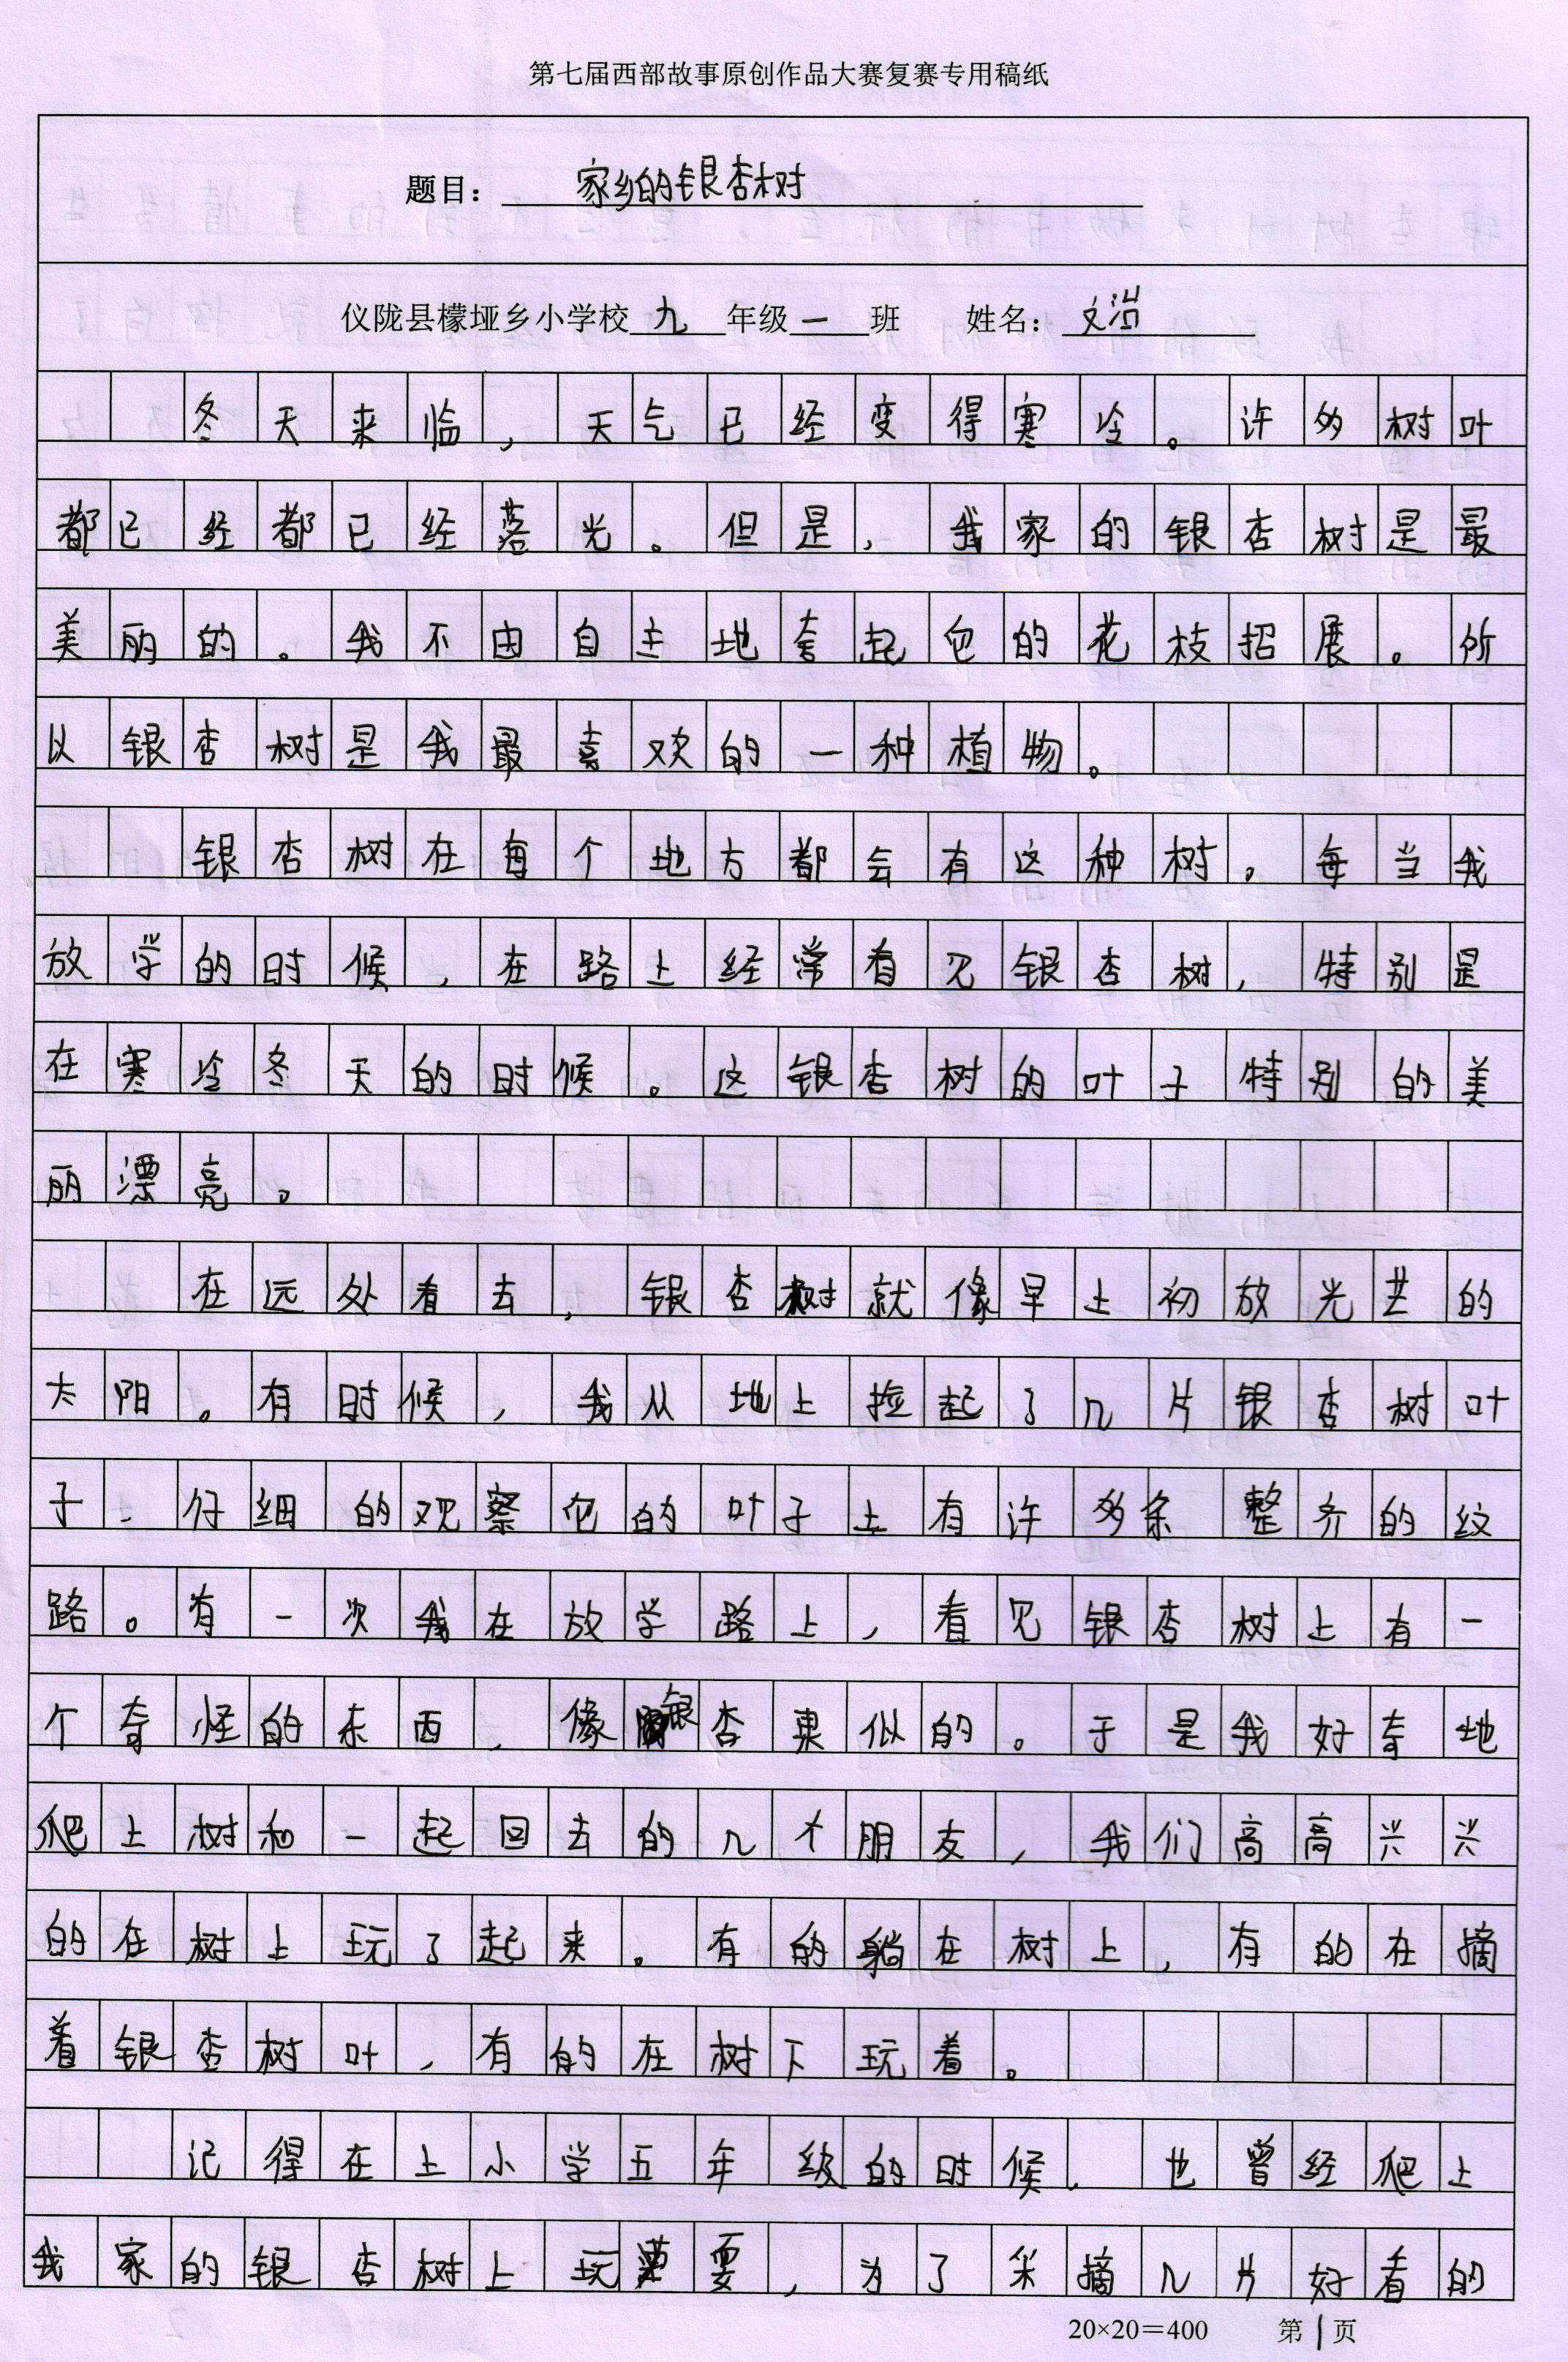 第七届西部故事原创作品大赛复赛专用稿纸
题目：家乡的银杏树
仪陇县檬垭乡小学校九年级一班 姓名：文浩
冬天来临，天气已经变得寒冷。许多树叶
都已经都已经落光。但是，我家的银杏树是最
美丽的。我不由自主地夸起它的花枝招展。所
以银杏树是我最喜欢的一种植物。
银杏树在每个地方都会有这种树。每当我
放学的时候，在路上经常看见银杏树，特别是
在寒冷冬天的时候。这银杏树的叶子特别的美
丽漂亮。
在远处看去，银杏树就像早上初放光芒的
太阳。有时候，我从地上捡起了几片银杏树叶
子，仔细的观察它的叶子上有许多条整齐的纹
路。有一次我在放学路上，看见银杏树上有一
个奇怪的东西，像银杏果似的。于是我好奇地
爬上树和一起回去的几个朋友，我们高高兴兴
的在树上玩了起来。有的躺在树上，有的在摘
着银杏树叶，有的在树下玩着。
记得在上小学五年级的时候，也曾经爬上
我家的银杏树上玩耍，为了采摘几片好看的
20×20＝400 第1页